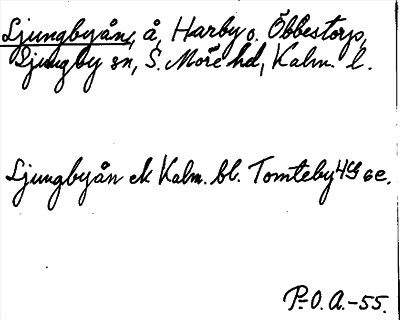 Ljungbyån, å, Harby o. Öbbestorp,
Ljungby sn, S. Möre hd, Kalm. l.
Ljungbyån ek Kalm. bl. Tomteby 4G se.
P-O.A.-55.